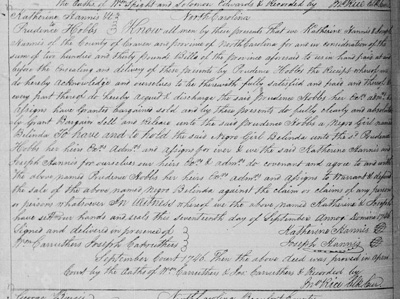 the Oaths of Wm Speight and Solomon Edwards & Recorded by
Katherine Hannis &ca North Carolina
Prudence Hobbs Know all men by these Presents That we Katherine Hannis & Joseph
Hannis of the County of Craven and province of North Carolina for and in consideration of the
sum of one hundred and thirty Pounds Bills of the province aforesaid to us in hand paid at and
before the ensealing and delivery of these presents by Prudence Hobbs the Receipt whereof we
do hereby Acknowledge and ourselves to be therewith fully satisfied and paid and thereof &
every part thereof do clearly acquit & discharge the said Prudence Hobbs her
Assigns have Granted bargained sold and by these presents do fully clearly and absolutely
Grant Bargain Sell and release unto the said Prudence Hobbs a Negro Girl named
Belinda To have and to hold the said Negro Girl Belinda unto the sd Prudence
Hobbs her heirs Exrs Admrs and assigns for ever & we the said Katherine Hannis and
Joseph Hannis for ourselves our heirs Exrs & admrs do covenant and agree to and with
the above named Prudence Hobbs her heirs Exrs admrs and assigns to Warrant & defend
the sale of the above named Negro Belinda against the claim or claims of any person
or persons whatsoever In Witness whereof we the above named Katherine & Joseph
have set our hands and seals this seventeenth day of September Annoq Domini 1746
Signed and delivered in presence of Katherine Hannis
Wm Carruthers Joseph Carruthers Joseph Hannis
September Court 1746. Then the above deed was proved in open
Court by the Oaths of Wm Carruthers & Jos: Carruthers & Recorded by
North Carolina